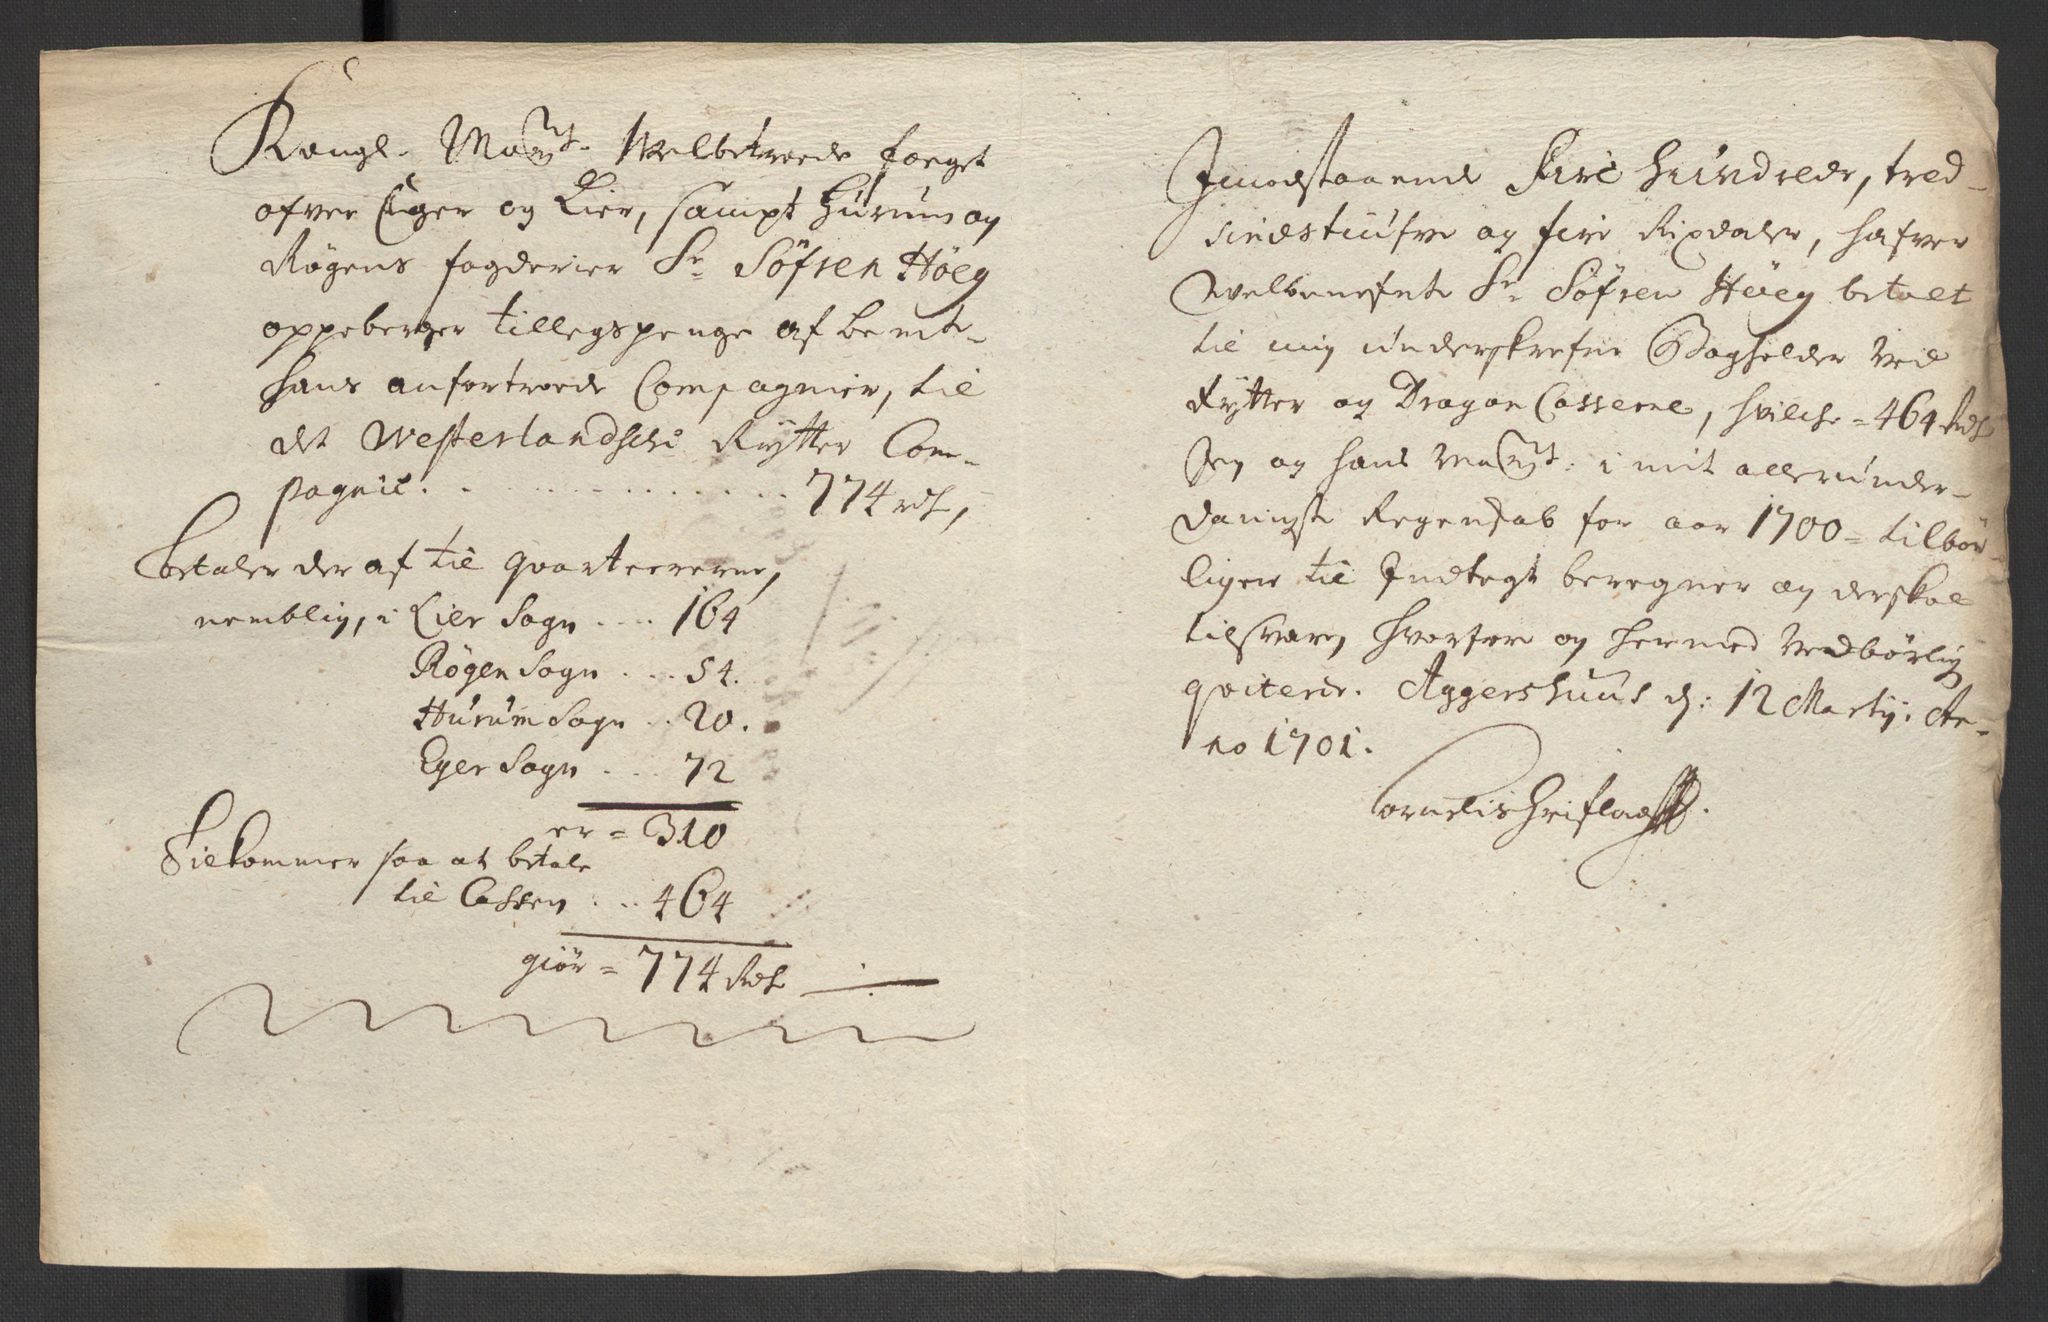 Kongl. Mayst. Welbetroede foeget
ofver Eger og Lier, sampt Hurum og
Røgens fogderier Sr. Söfren Höeg
oppeberger tillegspenge af bemte
hans anfortroede Compagnier, til
det Westerlandsche Rytter Com-
pagnie. . . . . . . . . . . . . . 774 rdr,
betaler der af til qvarteererne,
nemblig, i Lier Sogn .... 164
Røgen Sogn .... 54.
Hurum Sogn .. 20.
Eger Sogn .... 72
er = 310
Tilkommer saa at betale
til Cassen .... 464
giör = 774 Rdr
Imodstaaende Fire Hundrede, tred-
sindstiufve og fire Rixdaler, hafver
Welbenefnte Sr. Söfren Höeg betalt
til mig underskrefne Bogholder ved
Rytter og Dragon Casserne, hvilche = 464 Rdr
Jeg og hans Mayst. i mit allerunder-
danigste Regenskab for aar 1700 = tilbör-
ligen til Indtegt beregner og derskal
tilsvare, hvorfore og hermed vedbörlig
qviterer. Aggershuus d: 12 Martij. An-
no 1701.
Cornelis